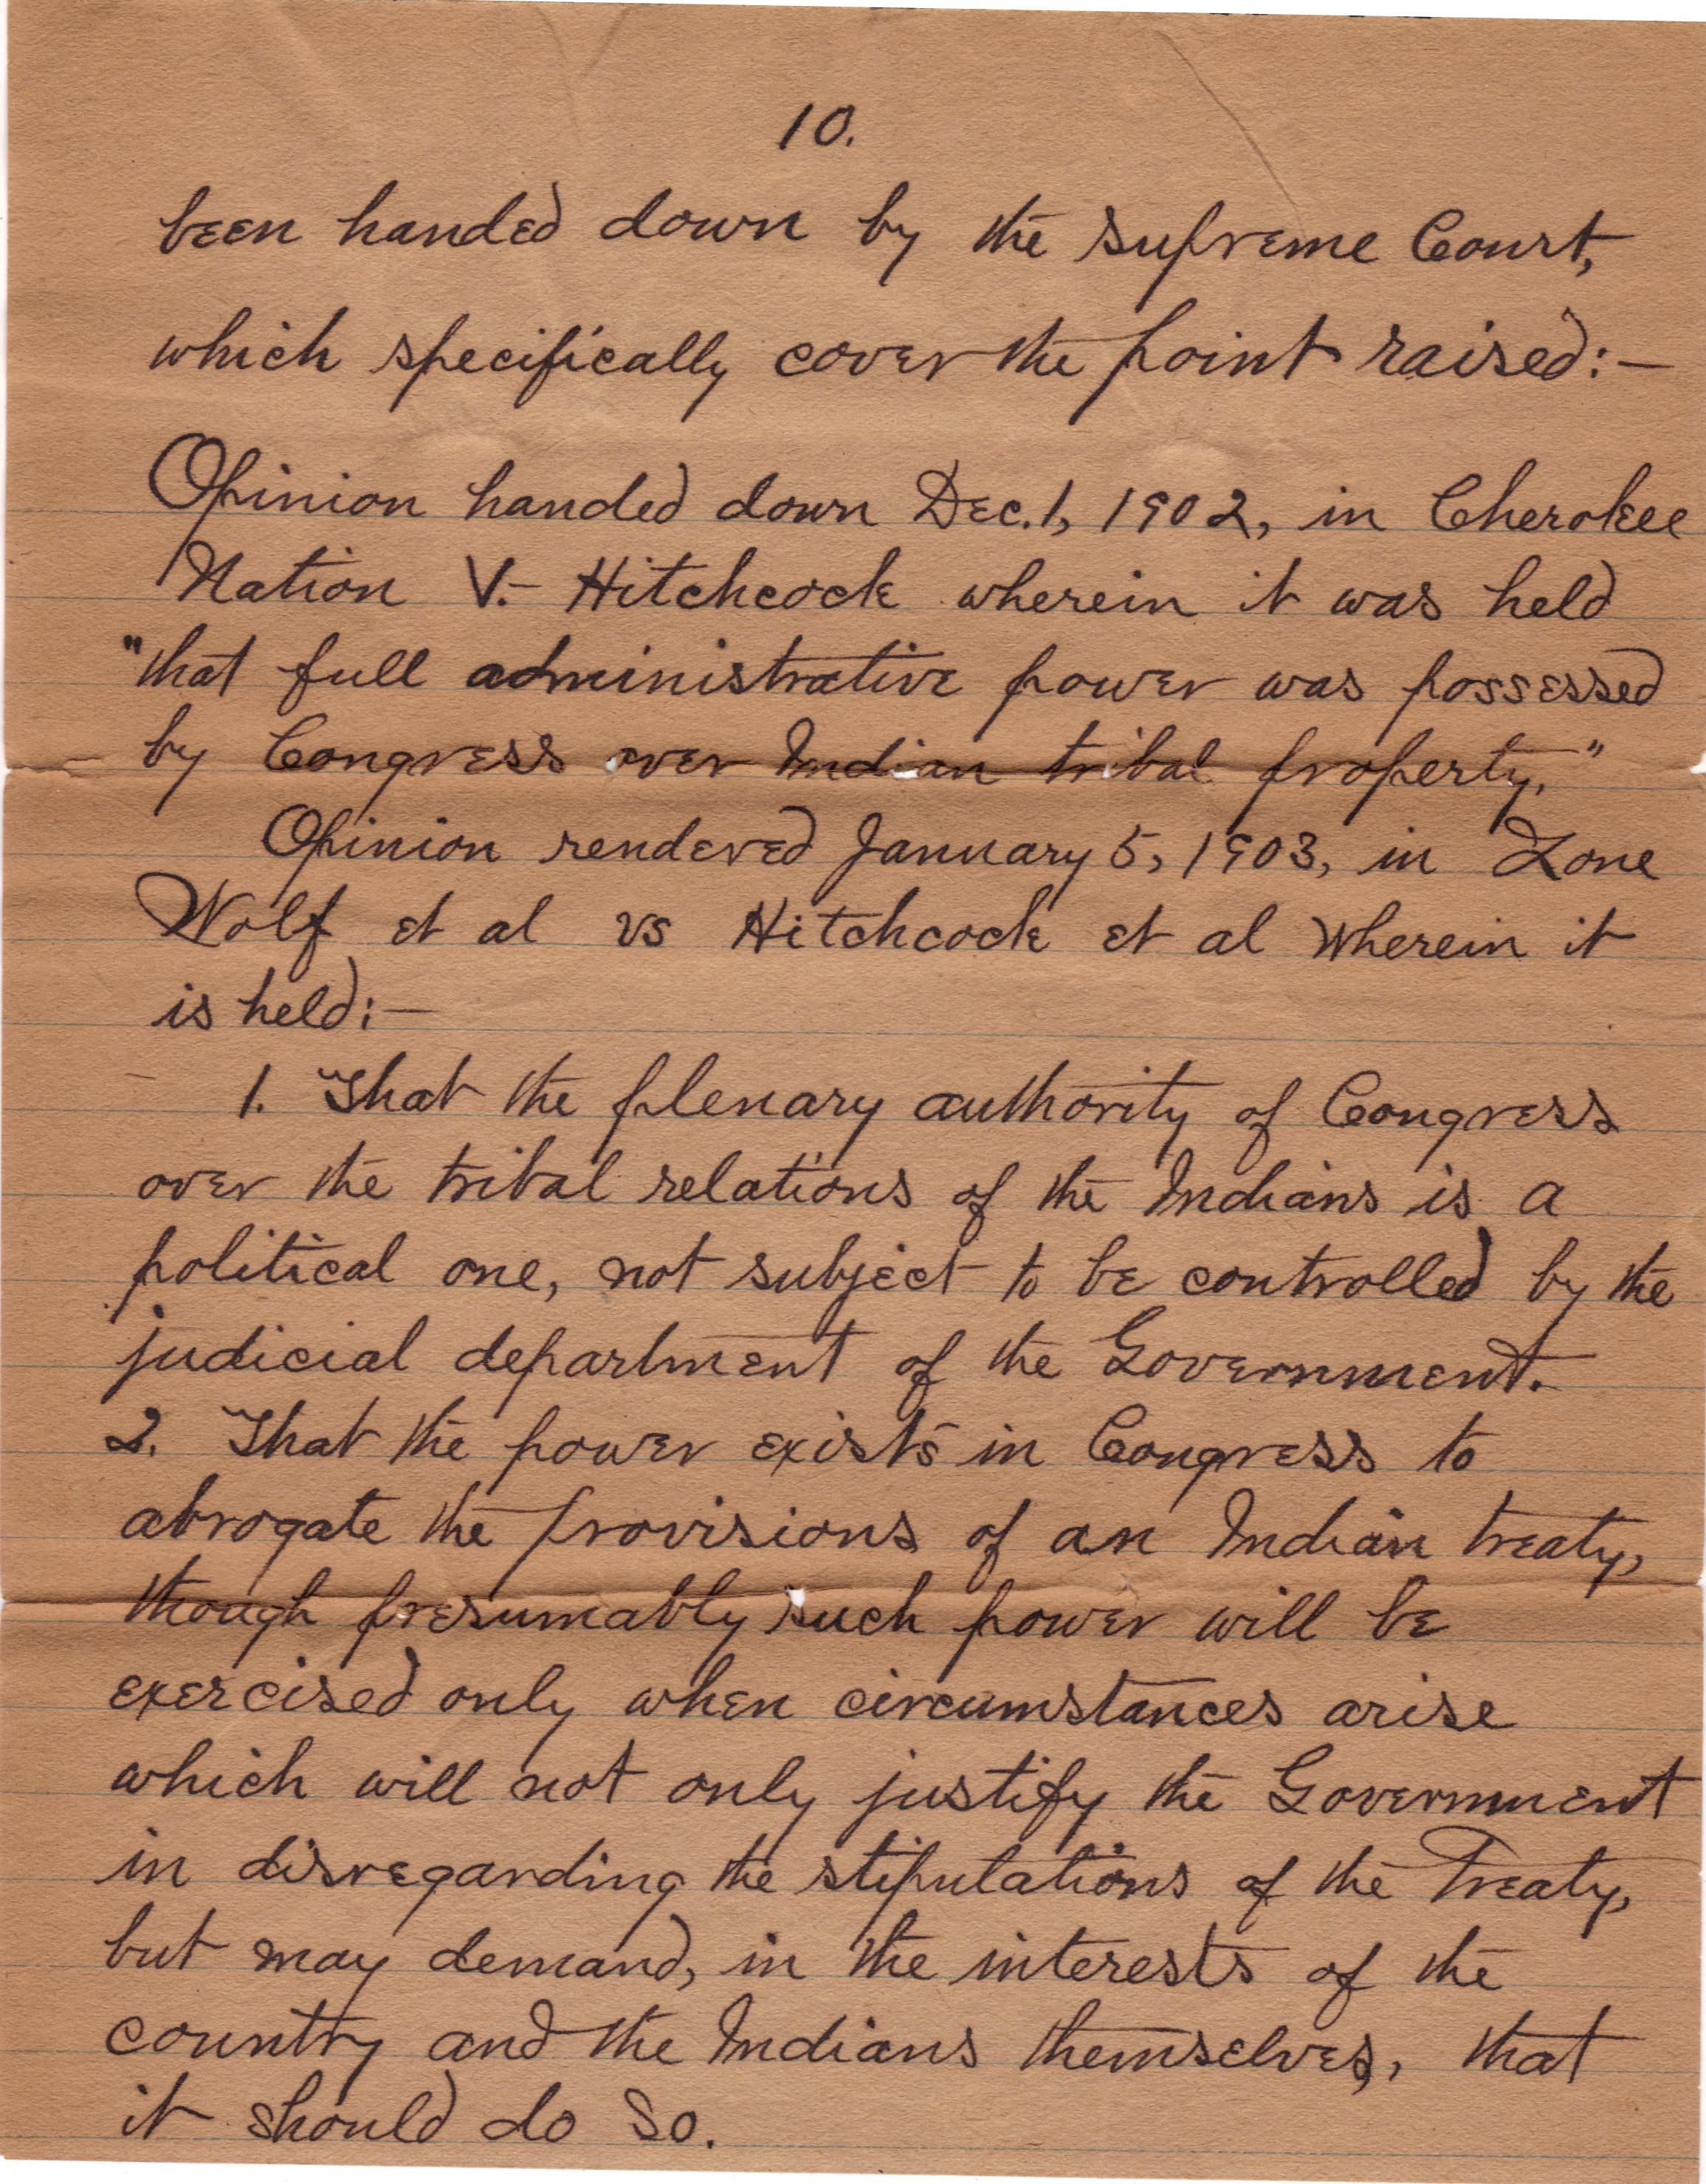 10.
been handed down by the supreme Court,
which specifically cover the point raised:—
Opinion handed down Dec. 1, 1902, in Cherokee
Nation V.- Hitchcock wherein it was held
"that full administrative power was possessed
by Congress over Indian tribal property."
Opinion rendered January 5, 1903, in Lone
Wolf et al vs Hitchcock et al wherein it
is held:—
1. That the plenary authority of Congress
over the tribal relations of the Indians is a
political one, not subject to be controlled by the
judicial department of the Government.
2. That the power exists in Congress to
abrogate the provisions of an Indian treaty,
though presumably such power will be
exercised only when circumstances arise
which will not only justify the Government
in disregarding the stipulations of the Treaty,
but may demand, in the interests of the
country and the Indians themselves, that
it should do so.